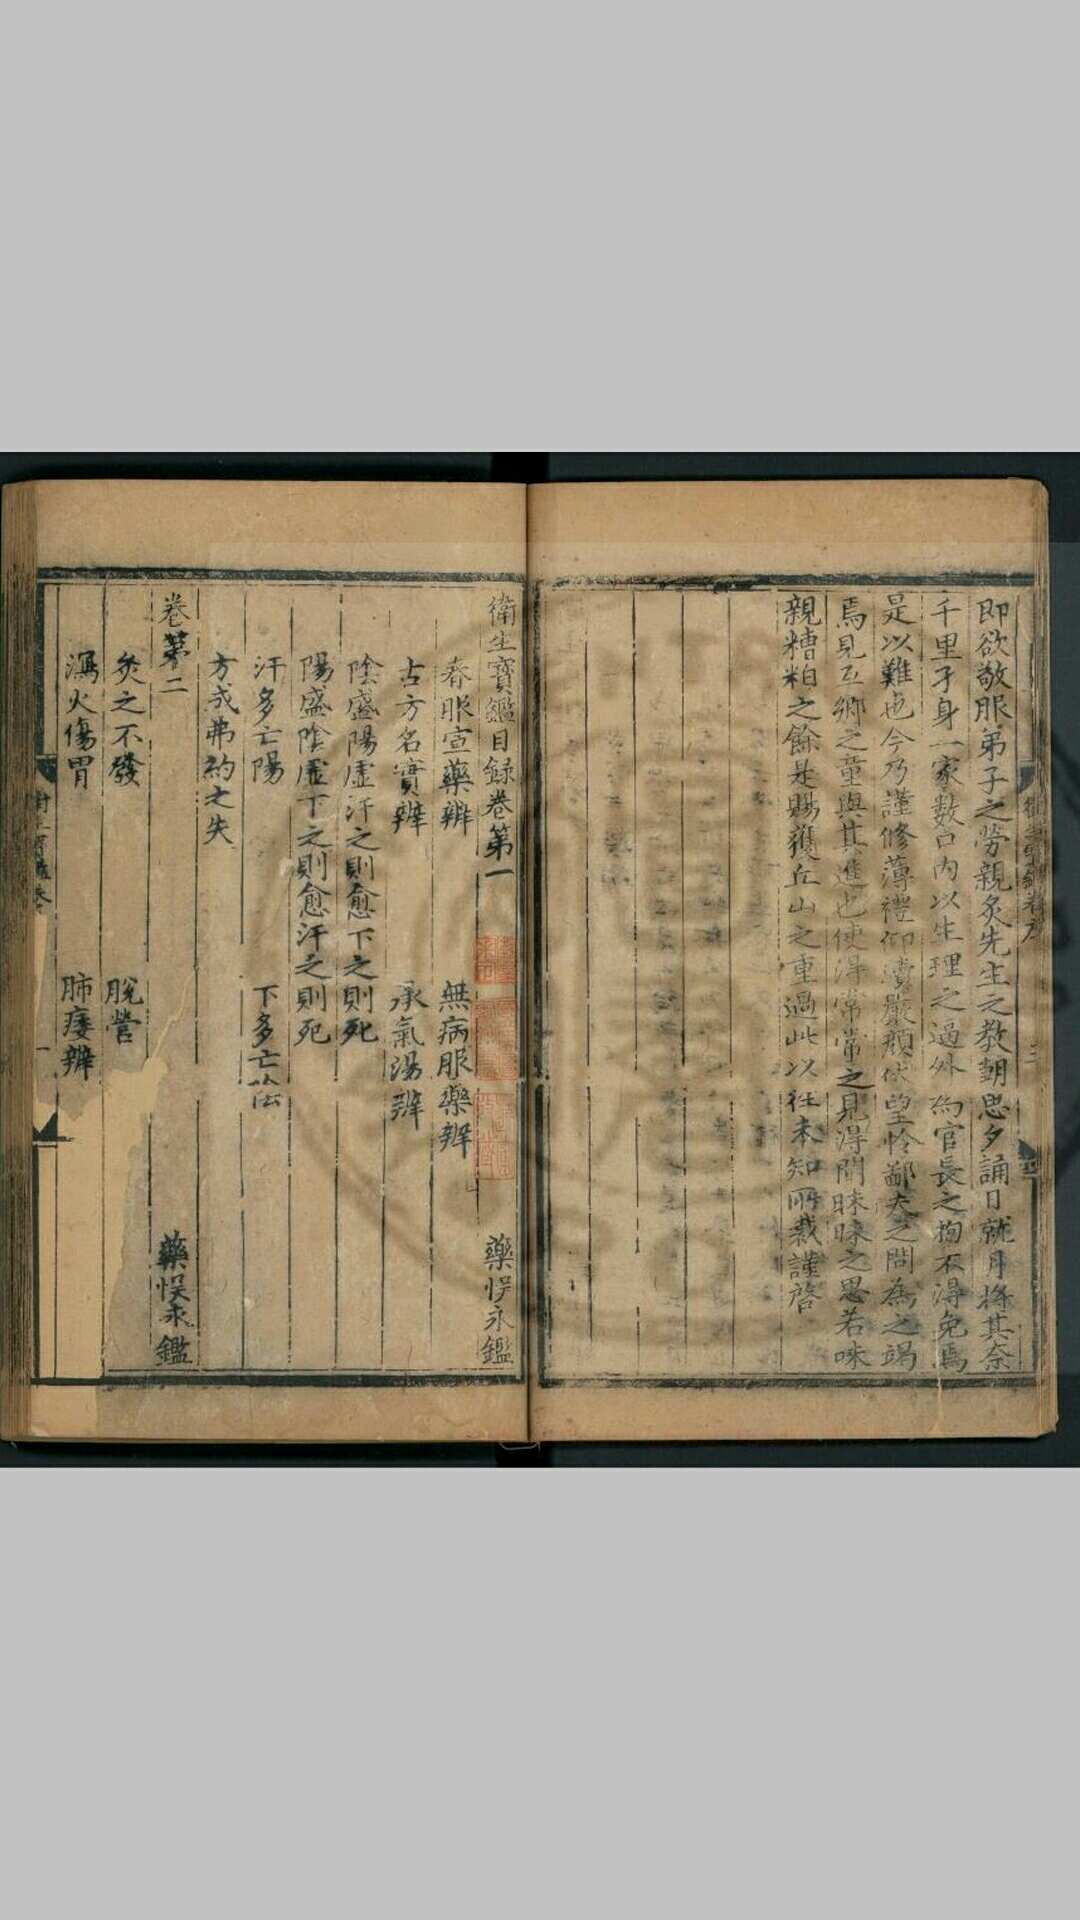 即欲敬服弟子之勞親炙先生之教朝思夕誦日就月將其奈
千里孑身一家數口内以生理之逼外為官長之拘不得免焉
是以難也今乃謹修薄禮仰瀆嚴顏伏望怜鄙夫之問為之竭
焉見互鄉之童與其進也使得常常之見得問昧昧之思若味
親糟粕之餘是賜獲丘山之重過此以往未知所裁謹啓
衛生寶鑑目録卷第一 藥悮永鑑
春服宣藥辨 無病服藥辨
古方名實辨 承氣湯辨
陰盛陽虛汗之則愈下之則死
陽盛陰虛下之則愈汗之則死
汗多亡陽 下多亡
方成弗約之失
卷第二 藥悮永鑑
灸之不發 脫營
瀉火傷胃 肺痿辨